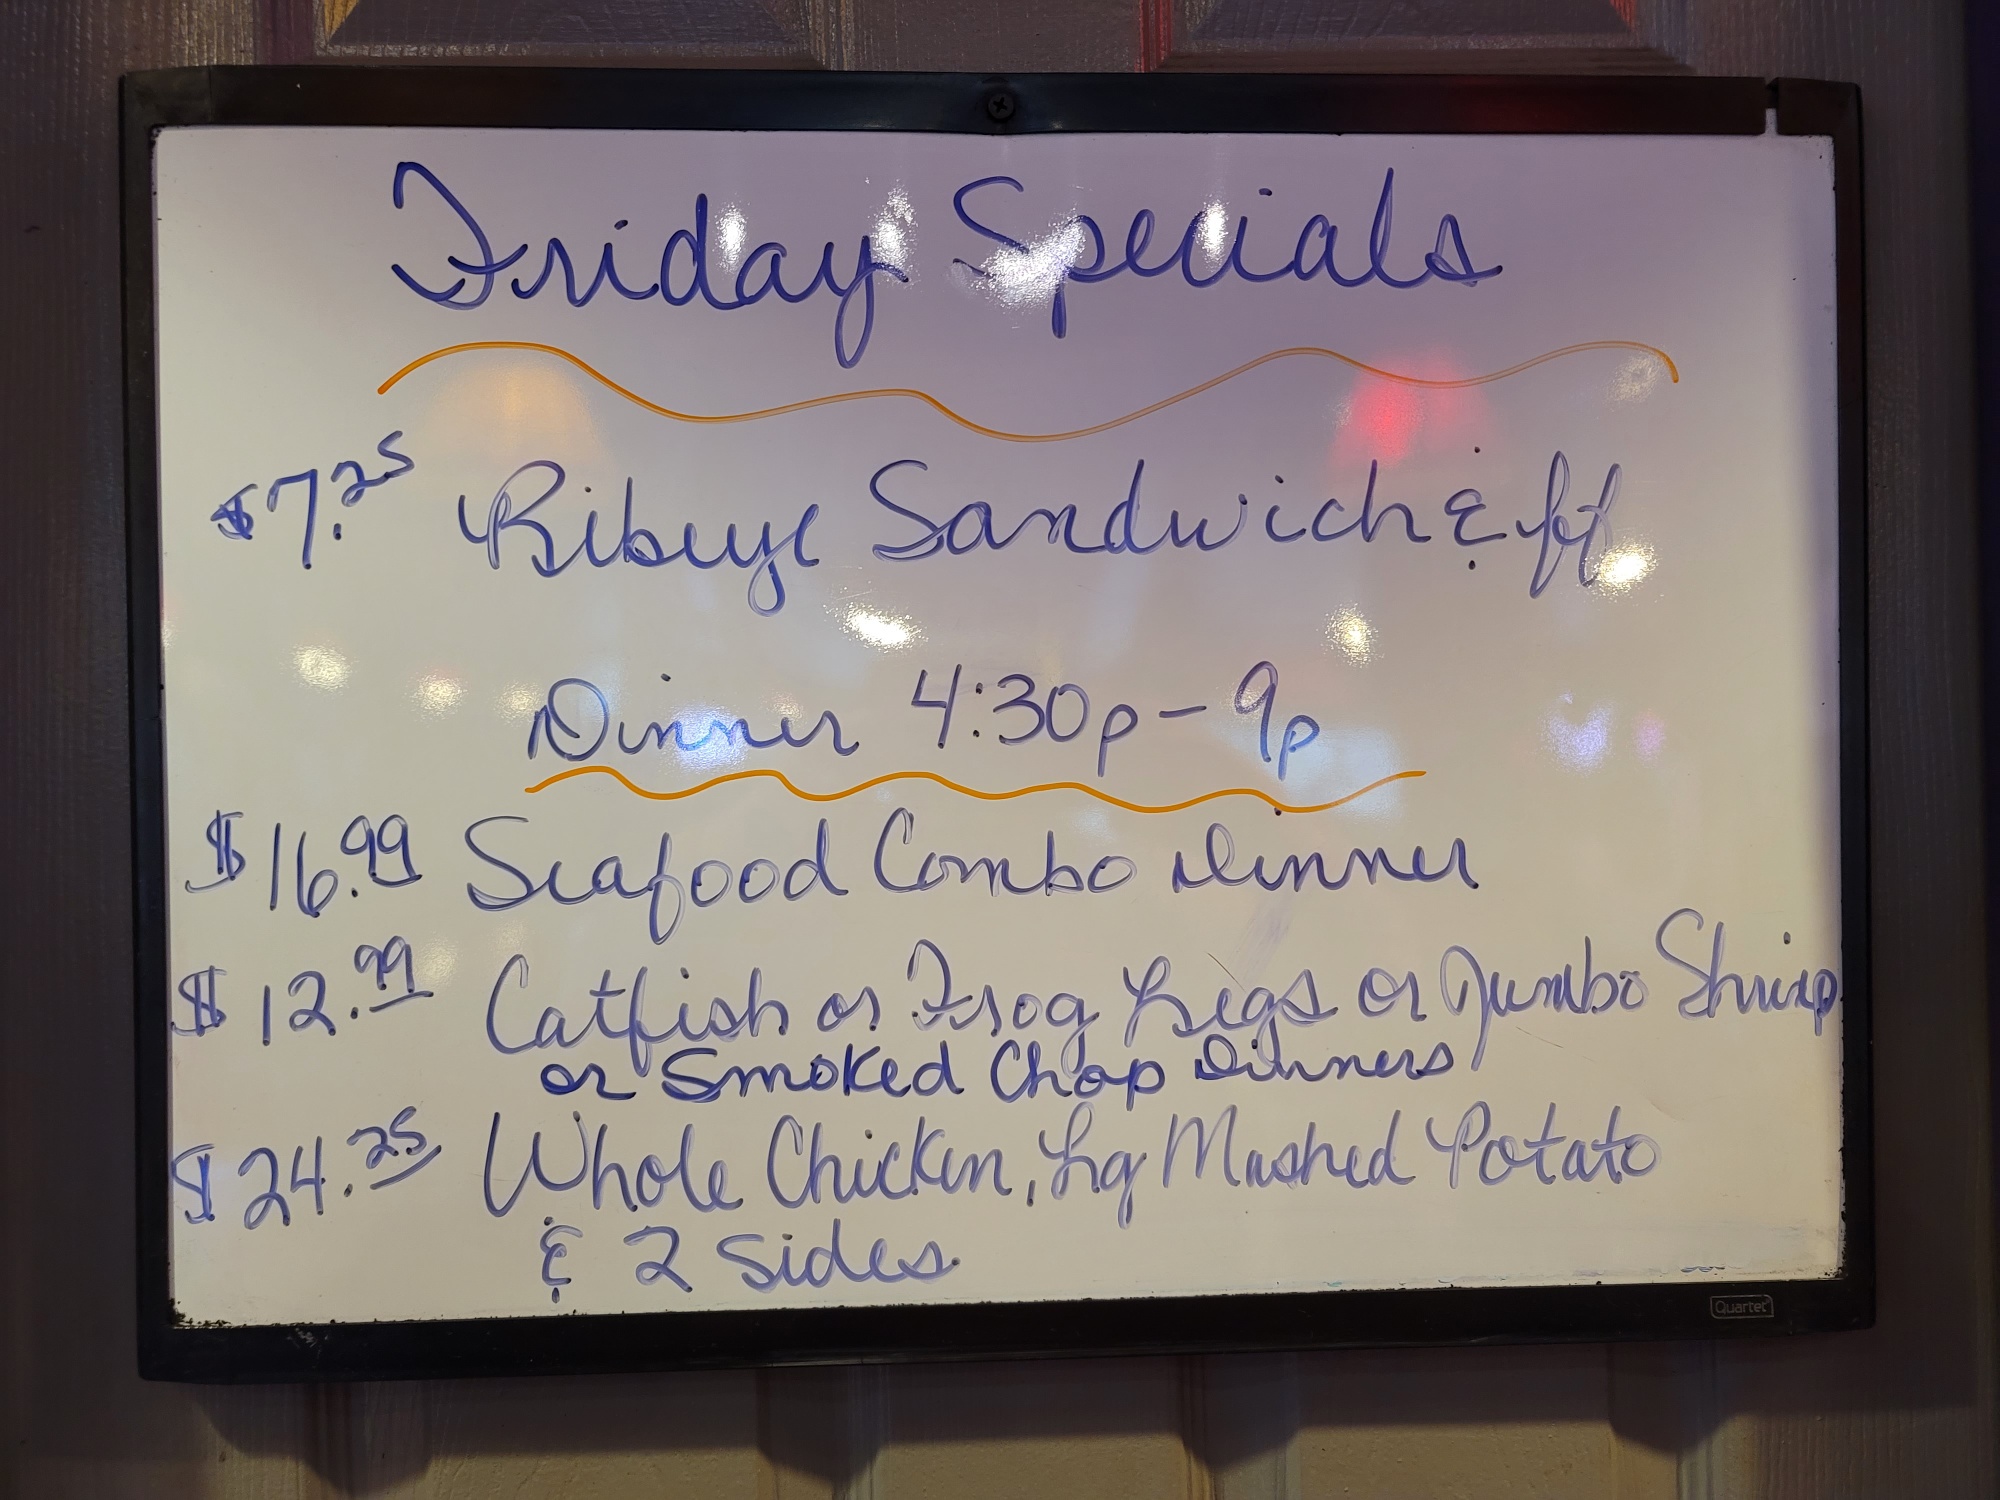 Friday Specials
$7.25 Ribeye Sandwich & ff
Dinner 4:30p - 9p
$16.99 Seafood Combo Dinner
$12.99 Catfish or Frog Legs or Jumbo Shrimp
or Smoked Chop Dinners
$24.25 Whole Chicken, Lg Mashed Potato
& 2 sides.
Quartet